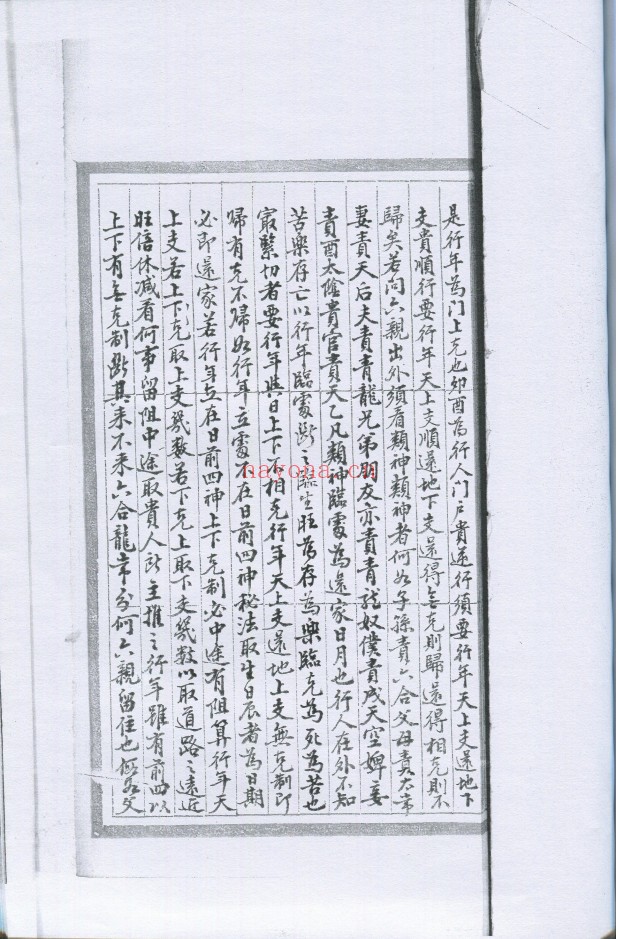 是行年為門上克也卯酉為行人門戶貴逆行須要行年天上支還地下
支貴順行要行年天上支順還地下支還得無克則歸還得相克則不
歸矣若問六親出外須看類神類神者何如子孫責六合父母責太常
妻責天后夫責青龍兄弟朋友亦責青龍奴僕責戌天空婢妾
責酉太陰貴官責天乙凡類神臨處為還家日月也行人在外不知
苦樂存亡以行年臨處斷之臨生旺為存為樂臨克為死為苦也
最緊切者要行年與日上下不相克行年天上支還地上支無克制即
歸有克不歸如行年立處不在日前四神秘法取生日辰者為日期
必即還家若行年立在日前四神上下克制必中途有阻算行年天
上支若上下克取上支幾數若下克上取下支幾數以取道路之遠近
旺倍休減看何事留阻中途取貴人所主推之行年雖有前四以
上下有無克制斷其來不來六合龍常為何六親留住也假如父
nayona.cn